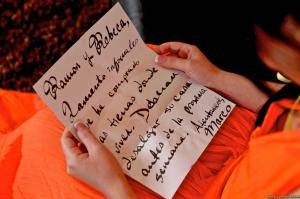 Ramón y Rebeca,
Lamento informarles
que he comprado
las tierras donde
viven. Deberán
desalojar su casa
antes de la próxima
semana.
Atentamente,
Marco